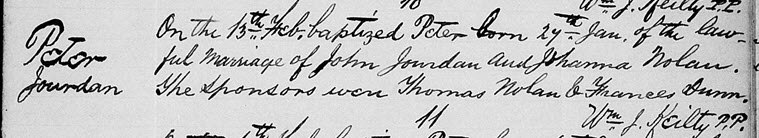 10
Wm J. Keilty P.P.
Peter
Jourdan
On the 13th Feb. baptized Peter born 27th Jan. of the law-
ful marriage of John Jourdan and Johanna Nolan.
The sponsors were Thomas Nolan & Frances Dunn.
11
Wm J. Keilty P.P.